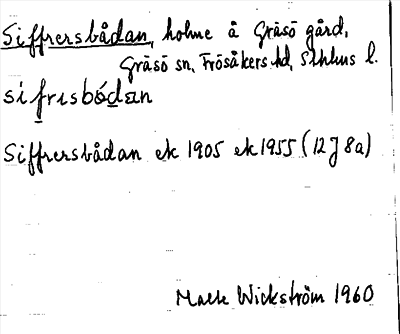 Siffrersbådan, holme å Gräsö gård,
Gräsö sn, Frösåkers hd, Sthlms l.
sifrisbódan
Siffrersbådan ek 1905 ek 1955 (12J 8a)
Malte Wickström 1960